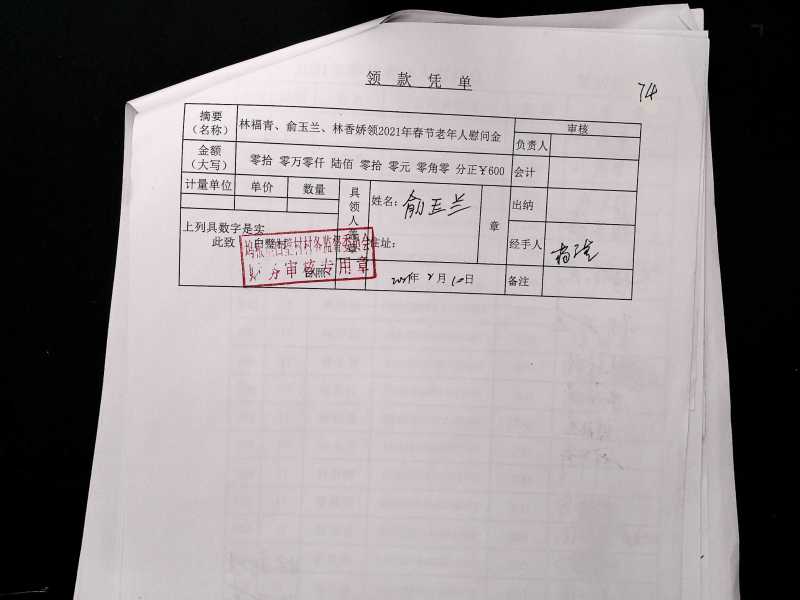 领款凭单
74
摘要
（名称）
林福青、俞玉兰、林香娇领2021年春节老年人慰问金
审核
负责人
金额
（大写）
零拾 零万零仟 陆佰 零拾 零元 零角零 分正￥600
会计
计量单位 单价 数量
具领人盖章
姓名：俞玉兰
章
出纳
上列具数字是实
此致
白壁村
住址：
台照
经手人
村务监督委员会
财务审核专用章
2021年2月10日
备注